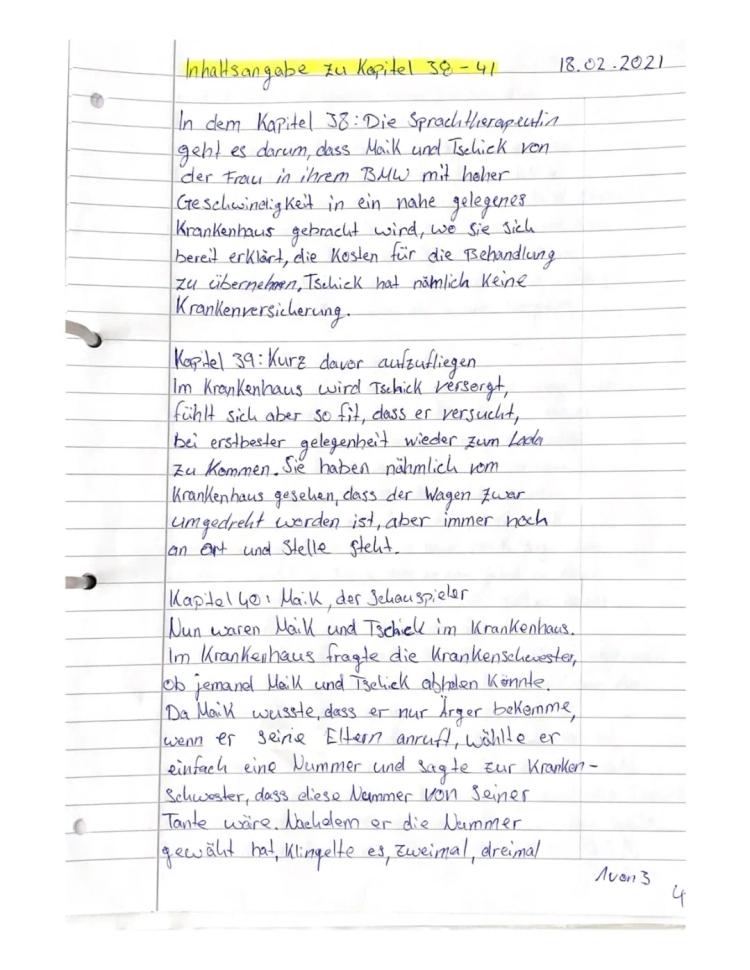 Inhaltsangabe zu Kapitel 38-41
18.02.2021
In dem Kapitel 38: Die Sprachtherapeutin
geht es darum, dass Maik und Tschick von
der Frau in ihrem BMW mit hoher
Geschwindigkeit in ein nahe gelegenes
Krankenhaus gebracht wird, wo sie sich
bereit erklärt, die Kosten für die Behandlung
zu übernehmen, Tschick hat nämlich keine
Krankenversicherung.
Kapitel 39: Kurz davor aufzufliegen
Im Krankenhaus wird Tschick versorgt,
fühlt sich aber so fit, dass er versucht,
bei erstbester gelegenheit wieder zum Lada
zu kommen. Sie haben nähmlich vom
Krankenhaus gesehen, dass der Wagen zwar
umgedreht worden ist, aber immer noch
an Ort und Stelle steht.
Kapitel 40: Maik, der Schauspieler
Nun waren Maik und Tschick im Krankenhaus.
Im Krankenhaus fragte die Krankenschwester,
ob jemand Maik und Tschick abholen könnte.
Da Maik wusste, dass er nur Ärger bekomme,
wenn er seine Eltern anruft, wählte er
einfach eine Nummer und sagte zur Kranken-
schwester, dass diese Nummer von seiner
Tante wäre. Nachdem er die Nummer
gewählt hat, klingelte es, zweimal, dreimal
1 von 3
4